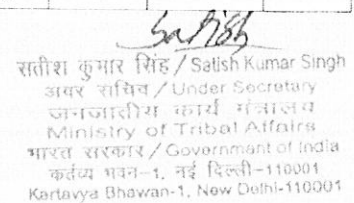 Satish
सतीश कुमार सिंह / Satish Kumar Singh
अवर सचिव / Under Secretary
जनजातीय कार्य मंत्रालय
Ministry of Tribal Affairs
भारत सरकार / Government of India
कर्तव्य भवन-1, नई दिल्ली-110001
Kartavya Bhawan-1, New Delhi-110001